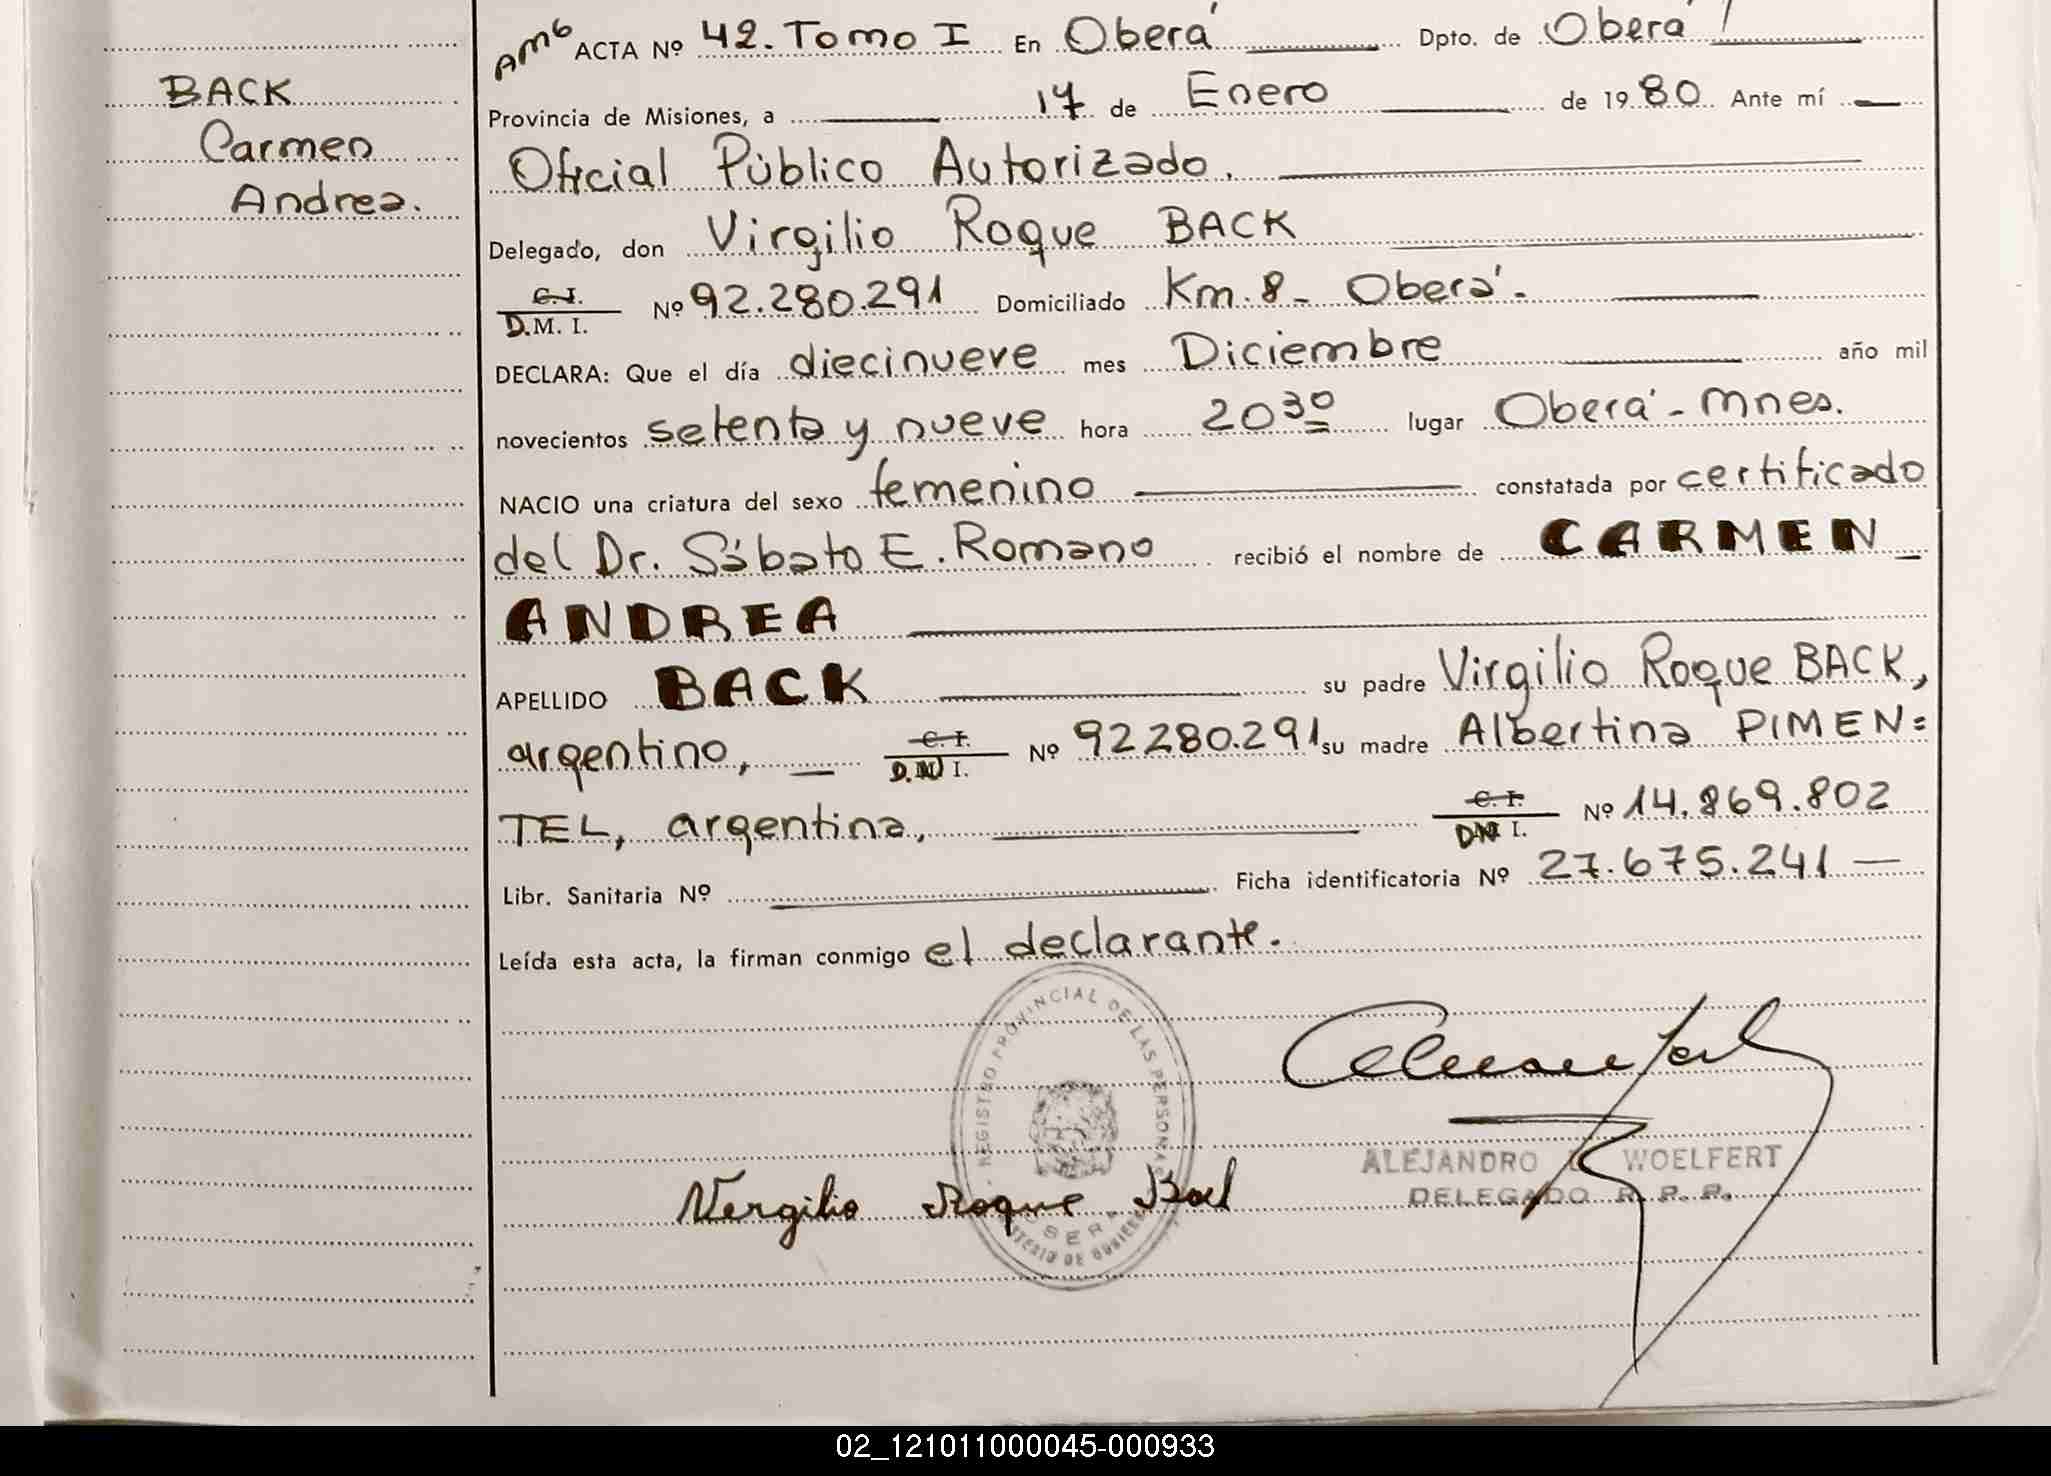 AM6 ACTA Nº 42. Tomo I En Oberá Dpto. de Oberá
BACK
Provincia de Misiones, a 17 de Enero de 1980. Ante mí
Carmen
Oficial Público Autorizado.
Andrea.
Delegado, don Virgilio Roque BACK
C.I.
D.M.I. Nº 92.280.291 Domiciliado Km. 8 - Oberá.
DECLARA: Que el día diecinueve mes Diciembre año mil
novecientos setenta y nueve hora 20 30 lugar Oberá - Mnes.
NACIO una criatura del sexo femenino constatada por certificado
del Dr. Sábato E. Romano recibió el nombre de CARMEN
ANDREA
APELLIDO BACK su padre Virgilio Roque BACK,
argentino, C.I. D.N.I. Nº 92280.291 su madre Albertina PIMEN=
TEL, argentina, C.I. DN I. Nº 14.869.802
Libr. Sanitaria Nº Ficha identificatoria Nº 27.675.241
Leída esta acta, la firman conmigo el declarante.
REGISTRO PROVINCIAL DE LAS PERSONAS
OBERA
ALEJANDRO WOELFERT
DELEGADO R. P. P.
Vergilio Roque Back
02_121011000045-000933